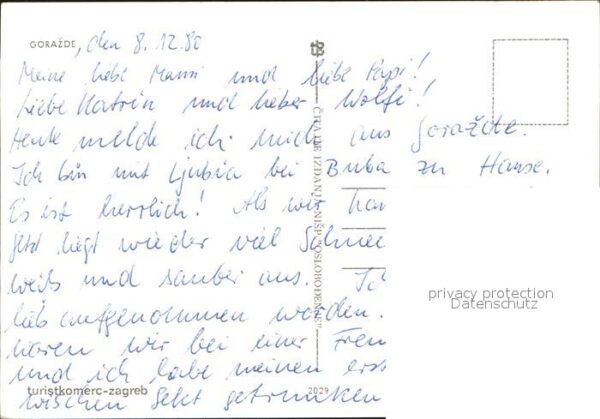 GORAŽDE, den 8.12.80
Meine liebe Mami und liebe Papi!
Liebe Katrin und lieber Wolfi!
Heute melde ich mich aus Goražde.
Ich bin mit Ljubia bei Buba zu Hause.
Es ist herrlich! Als wir
Jetzt liegt wieder viel Schnee
weiß und sauber aus. Ich
lieb aufgenommen worden.
waren wir bei einer
und ich habe meinen
Sekt getrunken
turistkomerc-zagreb
2029
ČIKA
IZDANJA NIŠP "OSLOBOĐENJE"
privacy protection
Datenschutz